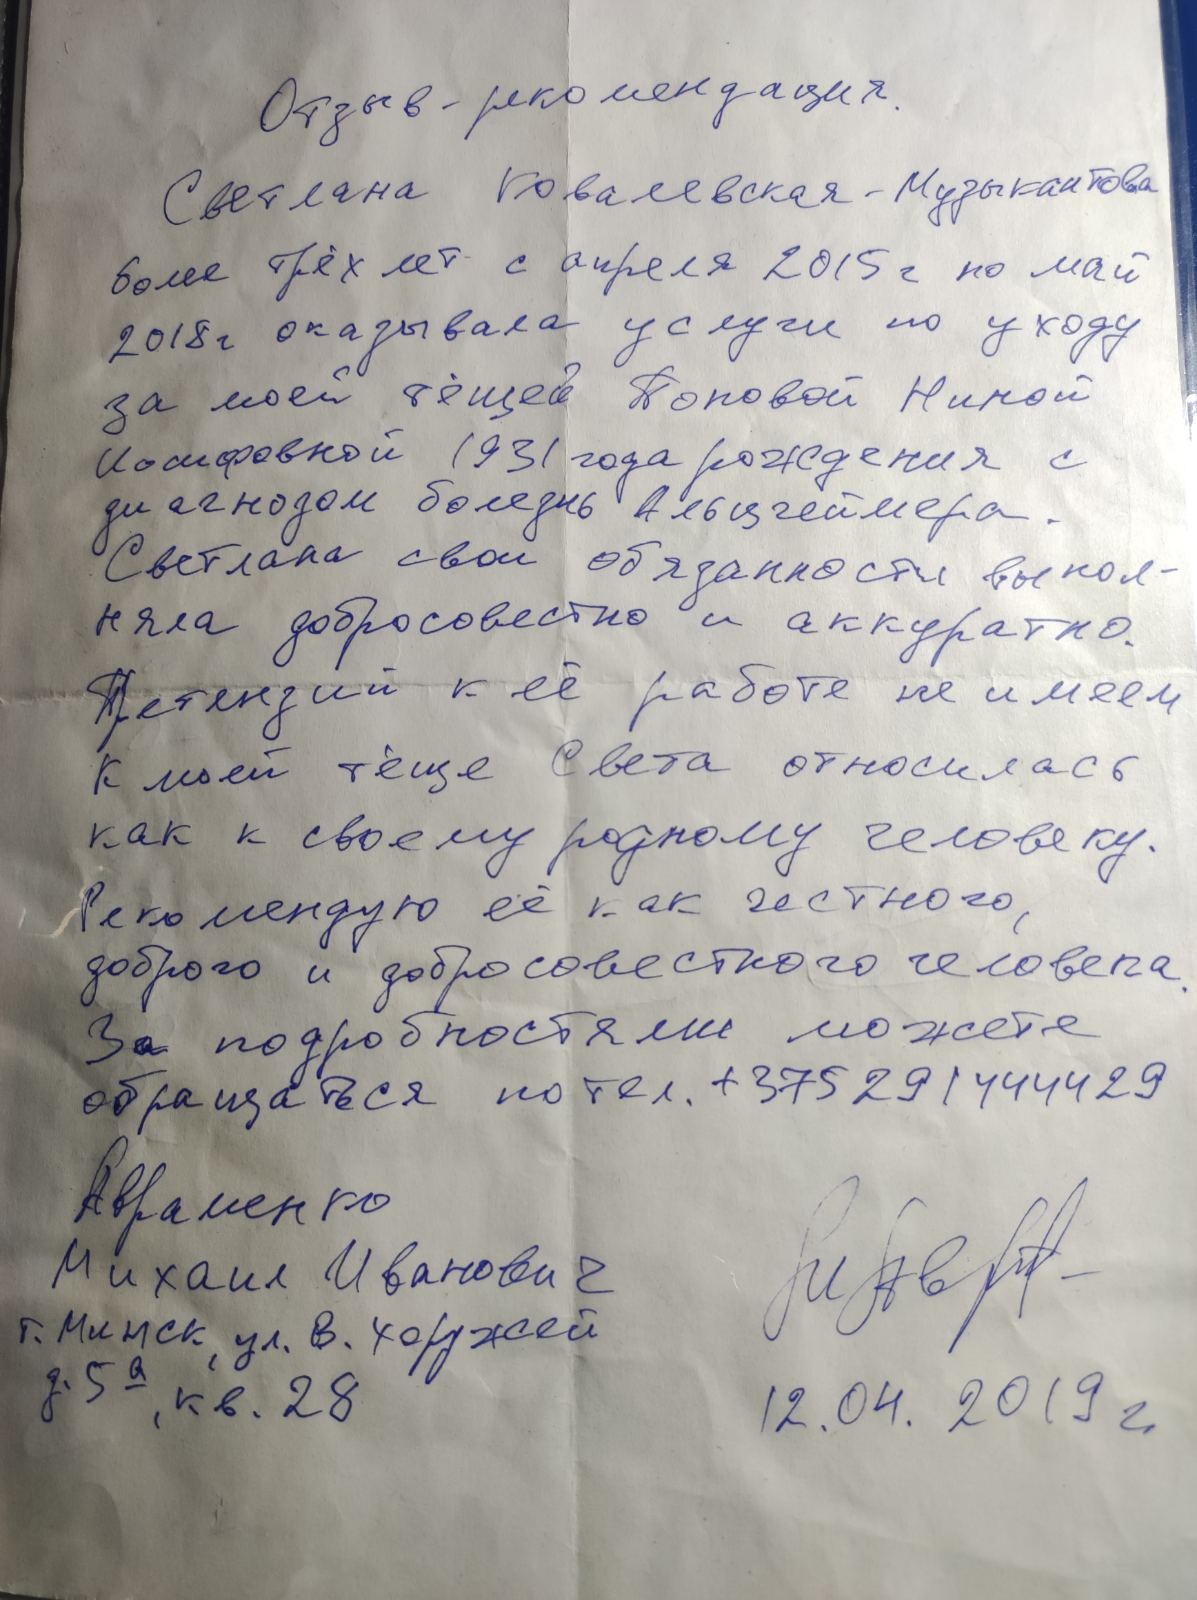 Отзыв-рекомендация.
Светлана Ковалевская-Музыкантова
более трёх лет с апреля 2015г по май
2018г оказывала услуги по уходу
за моей тёщей Поповой Ниной
Иосифовной 1931 года рождения с
диагнозом болезнь Альцгеймера.
Светлана свои обязанности выпол-
няла добросовестно и аккуратно.
Претензий к её работе не имеем
К моей тёще Света относилась
как к своему родному человеку.
Рекомендую её как честного,
доброго и добросовестного человека.
За подробностями можете
обращаться по тел. +375 29 1444429
Авраменко
Михаил Иванович
г. Минск, ул. В. Хоружей
д. 5а, кв. 28
12.04.2019г.